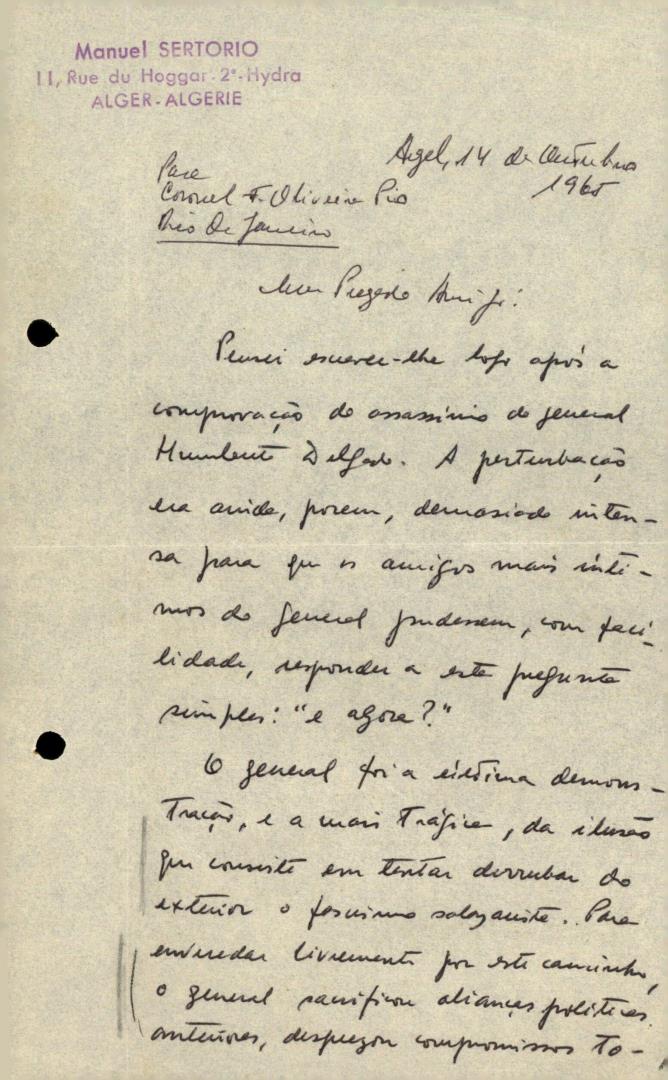 Manuel SERTORIO
11, Rue du Hoggar - 2º - Hydra
ALGER - ALGERIE
Argel, 14 de Outubro
1965
Para
Coronel F. Oliveira Pio
Rio De Janeiro
Meu Prezado Amigo:
Pensei escrever-lhe logo após a
comprovação do assassínio do general
Humberto Delgado. A perturbação
era ainda, porém, demasiado inten-
sa para que os amigos mais ínti-
mos do general pudessem, com faci-
lidade, responder a esta pergunta
simples: "e agora?"
O general foi a última demons-
tração, e a mais trágica, da ilusão
que consiste em tentar derrubar do
exterior o fascismo salazarista. Para
enveredar livremente por este caminho,
o general sacrificou alianças políticas
anteriores, desprezou compromissos to-